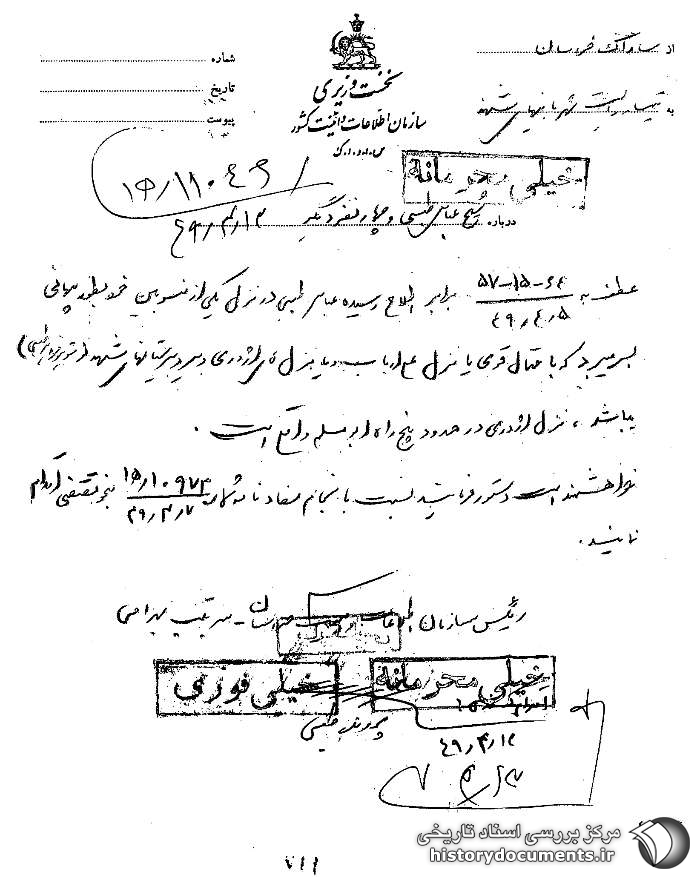 از ساواک خراسان
به تیمسار ریاست شهربانیهای مشهد
شماره
تاریخ
پیوست
نخست وزیری
سازمان اطلاعات و امنیت کشور
س.ا.و.ا.ک
خیلی محرمانه
۱۵/۱۱۰۴۶
۴۹/۴/۱۳
درباره شیخ عباس طبسی و چهار نفر دیگر
عطف به ۶۴-۱۵-۵۷
۴۹/۴/۵
برابر اطلاع رسیده عباس طبسی در منزل یکی از منسوبین خود بطور پنهانی
بسر میبرد که با احتمال قوی یا منزل
اژدری دبیر دبیرستانهای مشهد
میباشد، منزل اژدری در حدود پنج راه ابومسلم واقع است.
خواهشمند است دستور فرمائید نسبت بانجام مفاد نامه شماره ۱۵/۱۰۹۷۳ بنحو مقتضی اقدام
۴۹/۴/۷
نمایند.
رئیس سازمان اطلاعات و امنیت خراسان - سرتیپ بهرامی
خیلی محرمانه
خیلی فوری
پرونده طبسی
۴۹/۴/۱۳
۷۱۱
مرکز بررسی اسناد تاریخی
historydocuments.ir